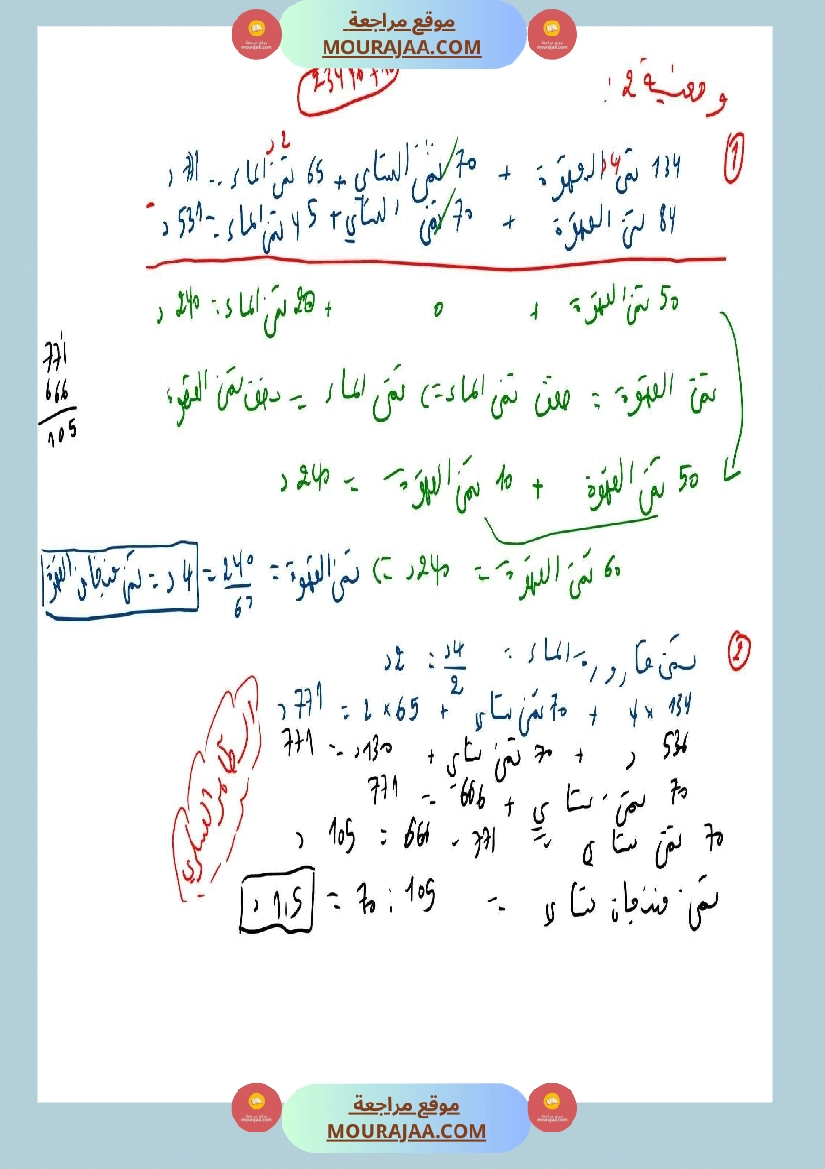 موقع مراجعة
MOURAJAA.COM
وضعية 2:
1
134 ثمن القهوة + 70 ثمن الشاي + 65 ثمن الماء = 771 د
84 ثمن القهوة + 70 ثمن الشاي + 45 ثمن الماء = 531 د
50 ثمن القهوة + 0 + 20 ثمن الماء = 240 د
ثمن القهوة = ضعف ثمن الماء => ثمن الماء = نصف ثمن القهوة
771
666
105
50 ثمن القهوة + 10 ثمن القهوة = 240 د
60 ثمن القهوة = 240 د => ثمن القهوة = 240/60 = 4 د = ثمن فنجان القهوة
2
ثمن قارورة الماء = 4 د/2 = 2 د
134 × 4 + 70 ثمن شاي + 65 × 2 = 771 د
536 د + 70 ثمن شاي + 130 د = 771
70 ثمن شاي + 666 = 771
70 ثمن شاي = 771 - 666 = 105 د
ثمن فنجان شاي = 105 : 70 = 1,5 د
موقع مراجعة
MOURAJAA.COM